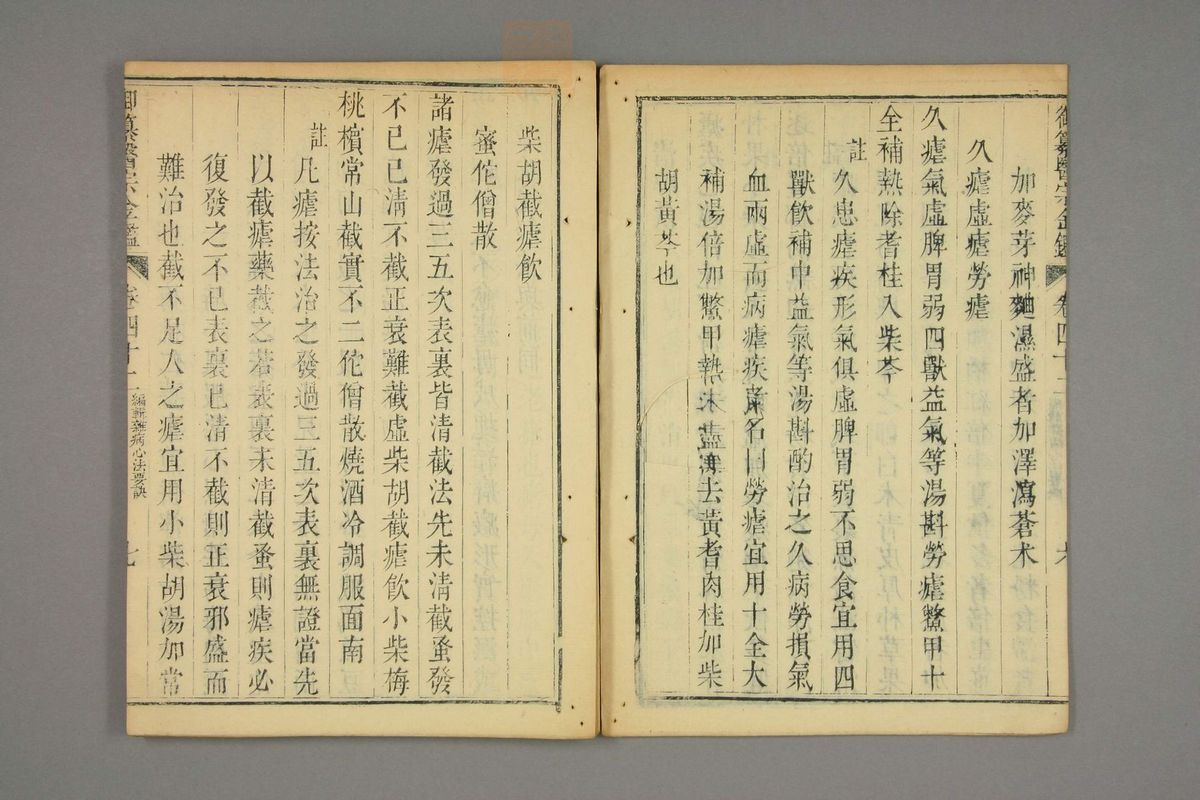 御纂醫宗金鑑 卷四十二 六
加麥芽神麯濕盛者加澤瀉蒼术
久瘧虛瘧勞瘧
久瘧氣虛脾胃弱四獸益氣等湯斟勞瘧鱉甲十
全補熱除耆桂入柴芩
註
久患瘧疾形氣俱虛脾胃弱不思食宜用四
獸飲補中益氣等湯斟酌治之久病勞損氣
血兩虛而病瘧疾者名曰勞瘧宜用十全大
補湯倍加鱉甲熱未盡者去黃耆肉桂加柴
胡黃芩也
柴胡截瘧飲
蜜佗僧散
諸瘧發過三五次表裏皆清截法先未清截蚤發
不已已清不截正衰難截虛柴胡截瘧飲小柴梅
桃檳常山截實不二佗僧散燒酒冷調服面南
註
凡瘧按法治之發過三五次表裏無證當先
以截瘧藥截之若表裏未清截蚤則瘧疾必
復發之不已表裏已清不截則正衰邪盛而
難治也截不足人之瘧宜用小柴胡湯加常
御纂醫宗金鑑 卷四十二 編輯雜病心法要訣 七